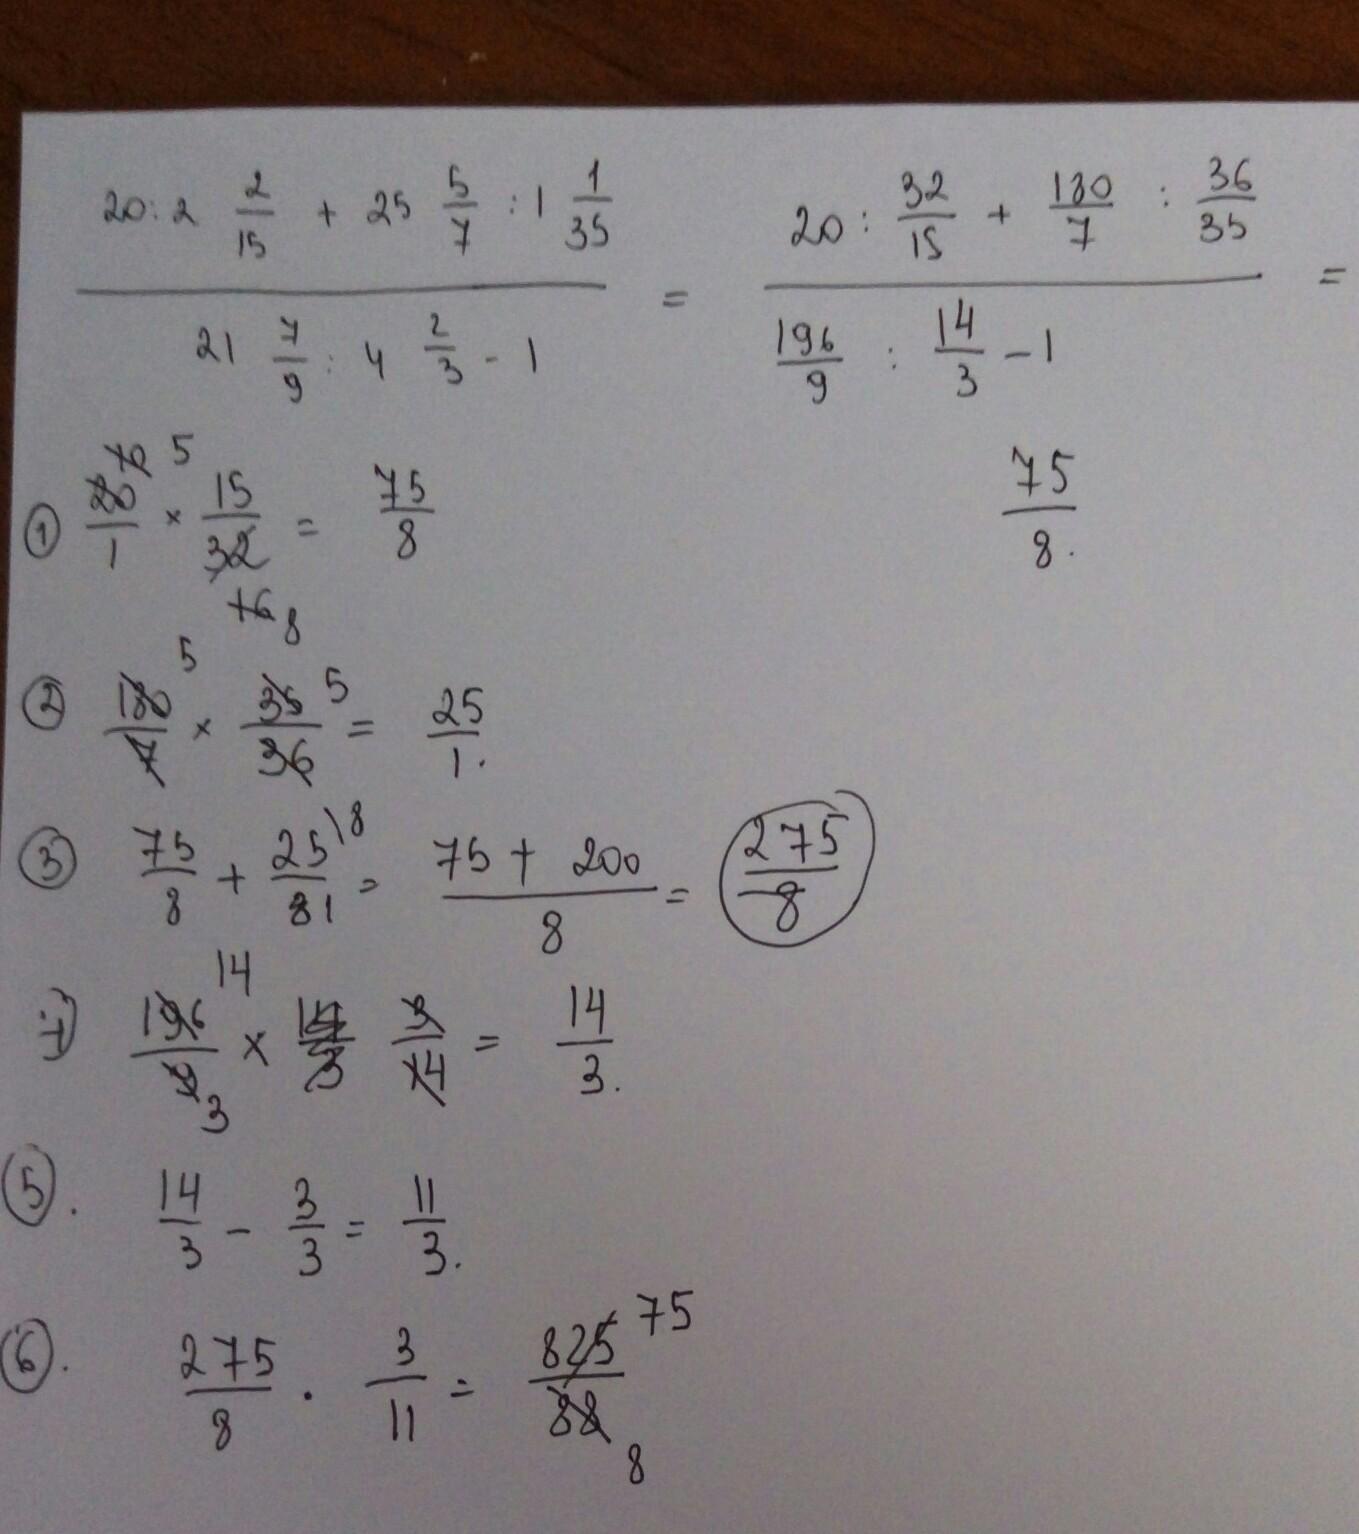 20 : 2 2/15 + 25 5/7 : 1 1/35 / 21 7/9 : 4 2/3 - 1 = 20 : 32/15 + 180/7 : 36/35 / 196/9 : 14/3 - 1 =
75/8.
① 20/1 10 5 × 15/32 16 8 = 75/8
② 180/7 5 × 35/36 5 = 25/1.
③ 75/8 + 25/81 \8 = 75 + 200/8 = 275/8
196/9 14 3 × 14/3 3/14 = 14/3.
⑤. 14/3 - 3/3 = 11/3.
⑥. 275/8 · 3/11 = 825/88 75 8